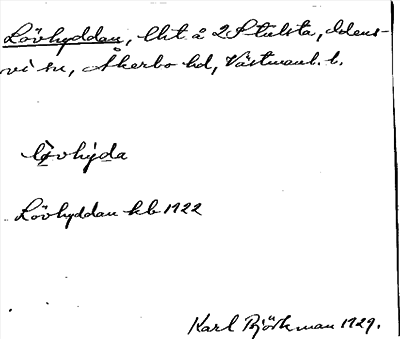 Lövhyddan, lht å 2 Stulsta, Odens-
vi sn, Åkerbo hd, Västmanl. l.
Lövhyddan kb 1922
Karl Björkman 1929.